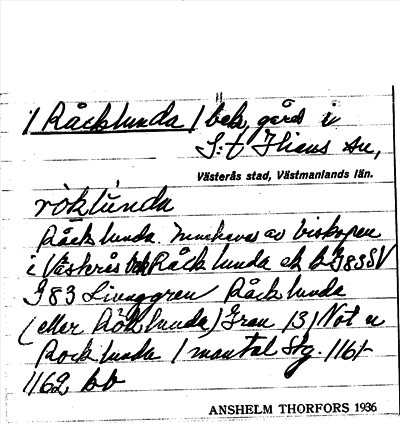 1/ Råcklunda / bek, gård i
S:t Ilians sn,
Västerås stad, Västmanlands län.
röklúnda
Råcklunda. Innehaves av biskopen
i Västerås Råcklunda ek G83SV
G83 Ljunggren Råcklunda
(eller Röklunda) Grau 131 Not u
Rocklunda 1 mantal Stg. 1161-
1162 bb
ANSHELM THORFORS 1936